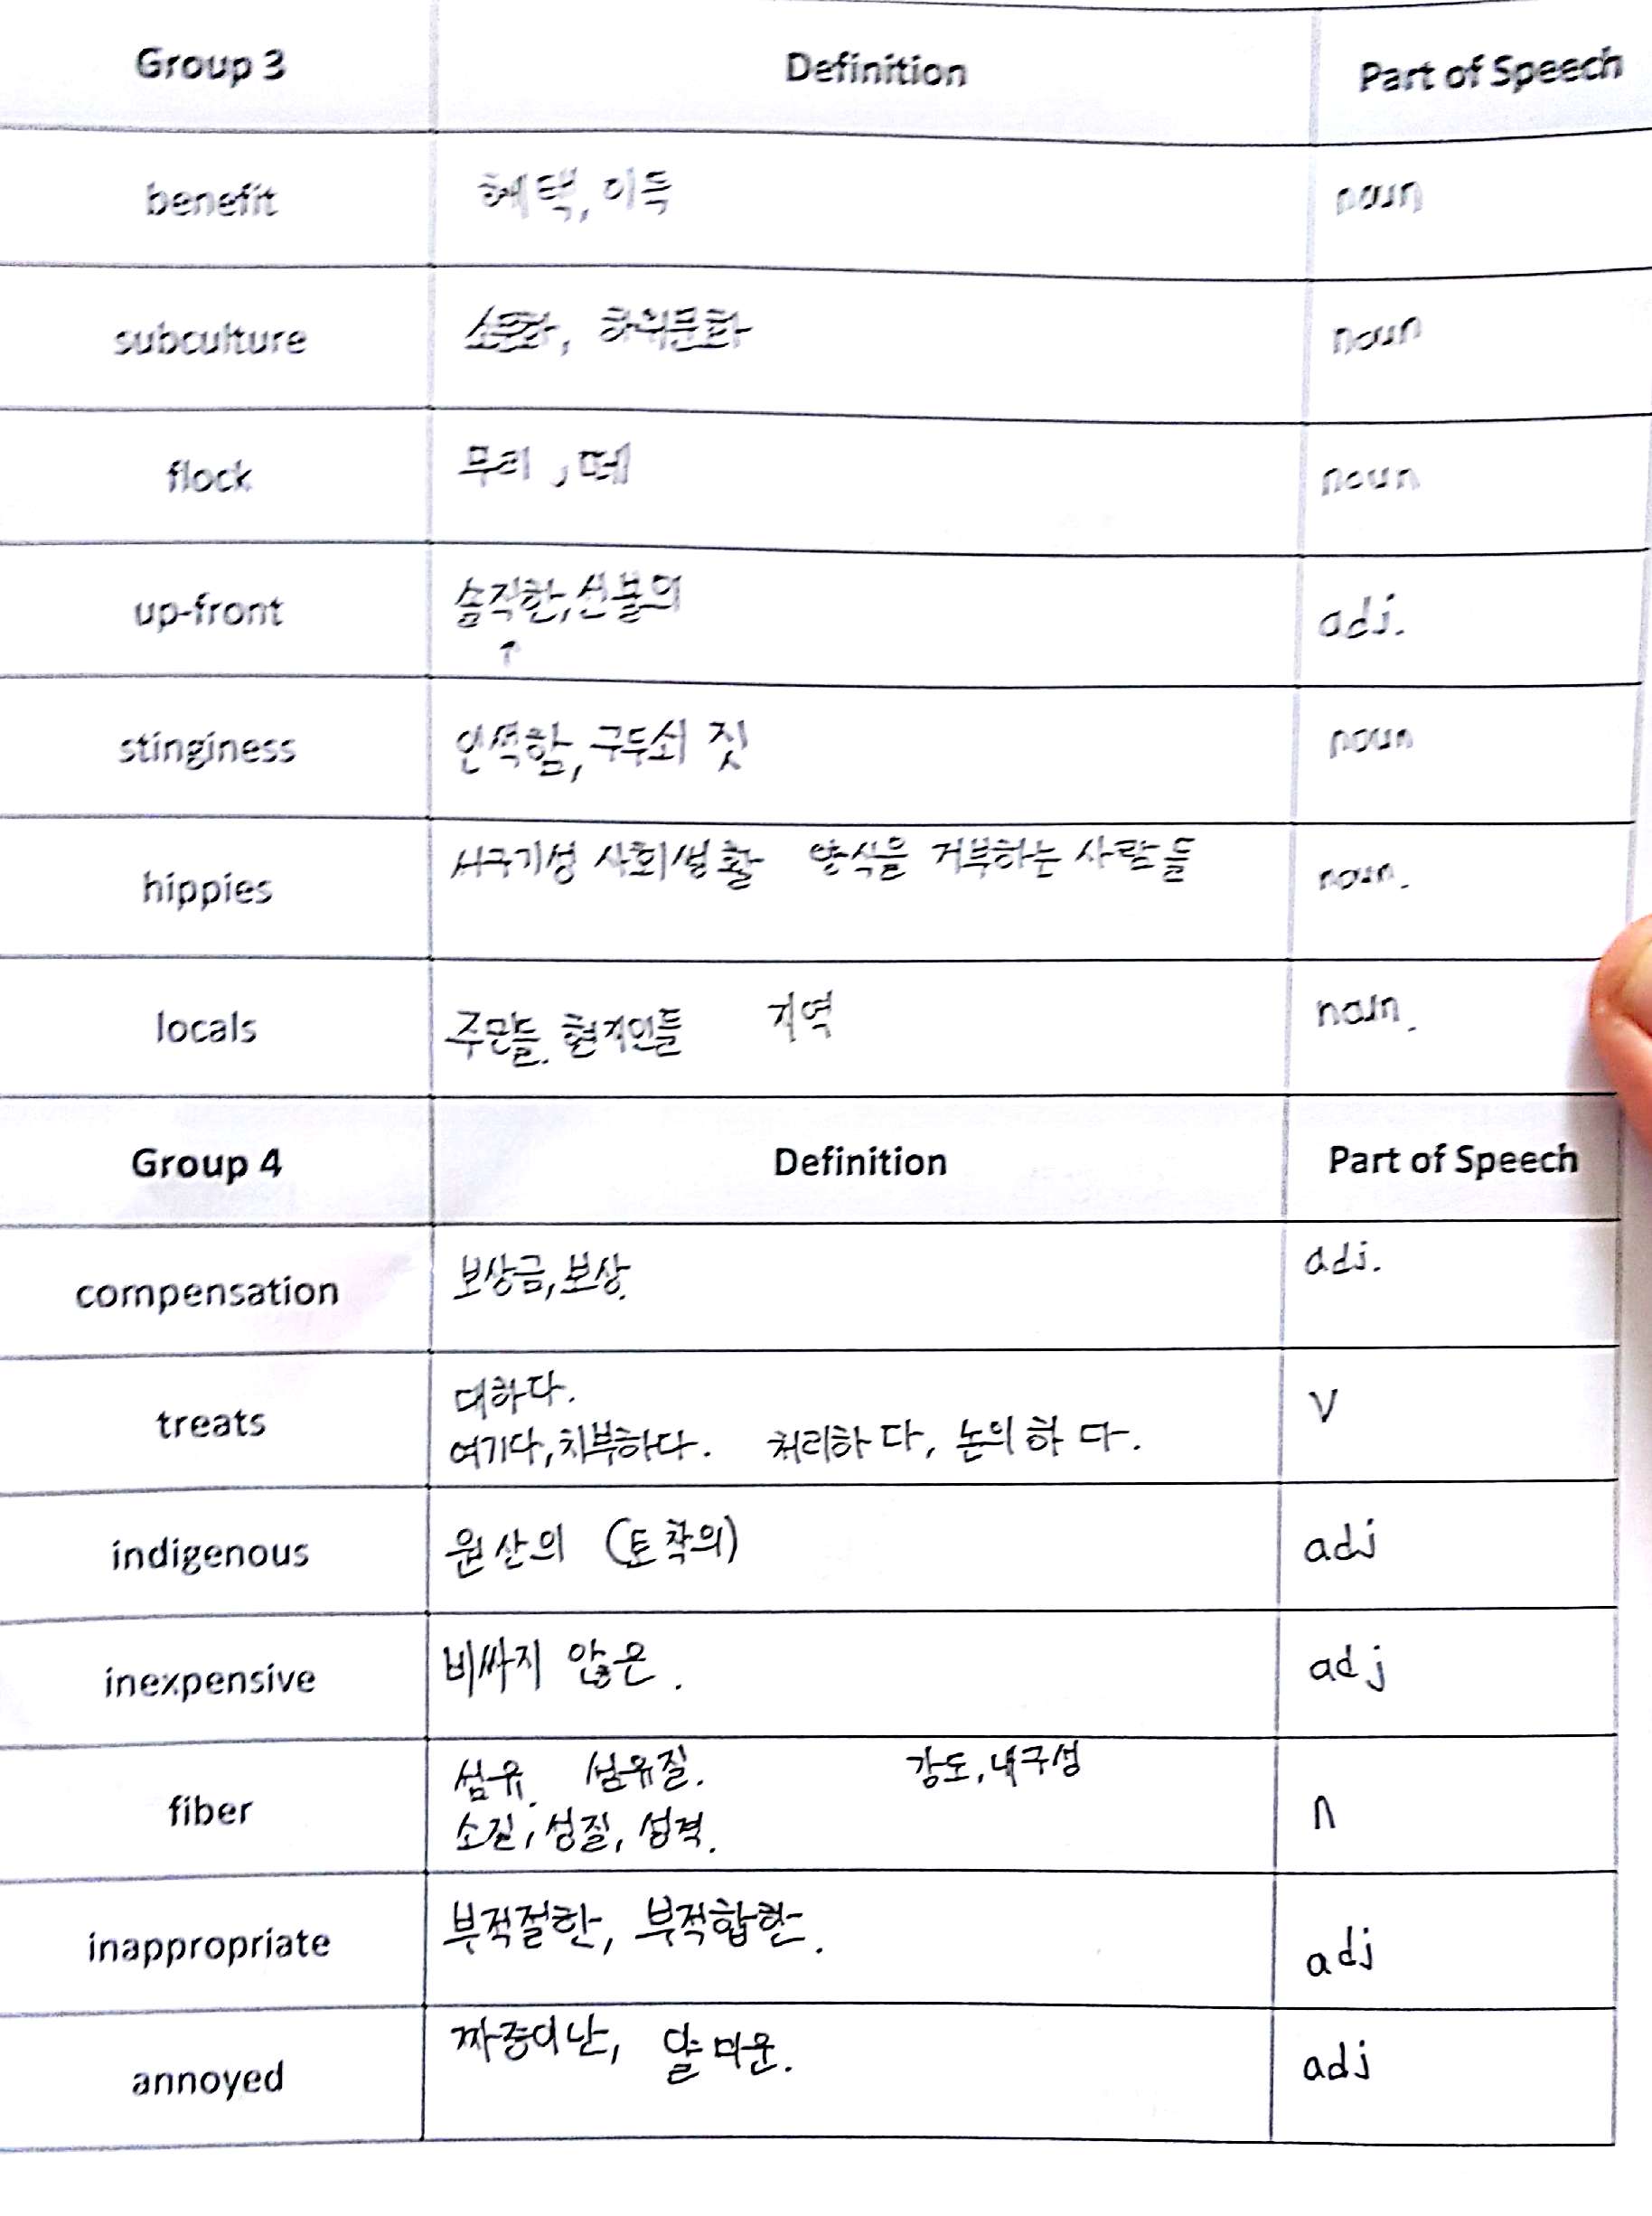 Group 3 Definition Part of Speech
benefit 혜택, 이득 noun
subculture 소문화, 하위문화 noun
flock 무리, 떼 noun
up-front 솔직한, 선불의 adj.
↑
stinginess 인색함, 구두쇠 짓 noun
hippies 서구기성 사회생활 양식을 거부하는 사람들 noun.
locals 주민들. 현지인들 지역 noun.
Group 4 Definition Part of Speech
compensation 보상금, 보상. adj.
treats 대하다. V
여기다, 치부하다. 처리하다, 논의하다.
indigenous 원산의 (토착의) adj
inexpensive 비싸지 않은. adj
fiber 섬유. 섬유질. 강도, 내구성 n
소질, 성질, 성격.
inappropriate 부적절한, 부적합한. adj
annoyed 짜증이난, 얄미운. adj